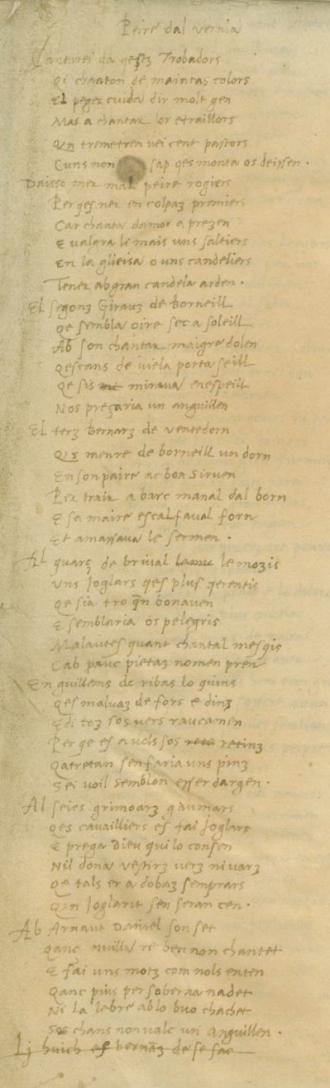 Peire dal vernia
Cantarei da qestz Trobadors
Qi chanton de maintas colors
El peger cuida dir molt gen
Mas a chantar lor er aillors
Qn tremetren vei cent pastors
Cuns non sap qes monta os deissen.
Daisso mer mal peire rogiers
Per qes ner en colpaz premiers
Car chanta damor a prezen
E valgra le mais uns saltiers
En la glieisa o uns candeliers
Tener ab gran candela arden.
El segonz Girauz de Borneill
Qe sembla oire sec a soleill
Ab son chantar maigre dolen
Qes cans de viela porta seill
Qe sis mirava en espeill
Nos prezaria un anguillen
El terz Bernarz de ventedorn
Qes menre de borneill un dorn
En son paire ac bon sirven
Per traire a barc manal dal born
E sa maire escalfaval forn
Et amassava le sermen.
Al quarz de briuial le mozis
Uns Joglars qes plus qerentis
Qe sia tro qen bonaven
E semblaria os pelegris
Malautes quant chantal mesqis
Cab pauc pietaz nomen pren
En guillems de ribas lo quins
Qes malvaz de fors e dinz
E di tez sos vers raucamen
Per qe es avols sos retinz
Qatretan sen faria uns pinz
Sei voil semblon esser dargen.
Al seies grimoarz gaumars
Qes cavailliers es fai Joglars
E prega Dieu qui lo consen
Nil dona vestirz verz ni varz
Qe tals er adobaz semprars
Qen Joglarit sen seran cen.
Ab Arnaut Daniel son set
Qanc nuilla re ben non chantet
E fai uns motz com nols enten
Qanc pius per soberna nadet
Ni la lebre ab lo buo chachet
Sos chans non valc un anguillen.
Lj huich bernaz de se fac